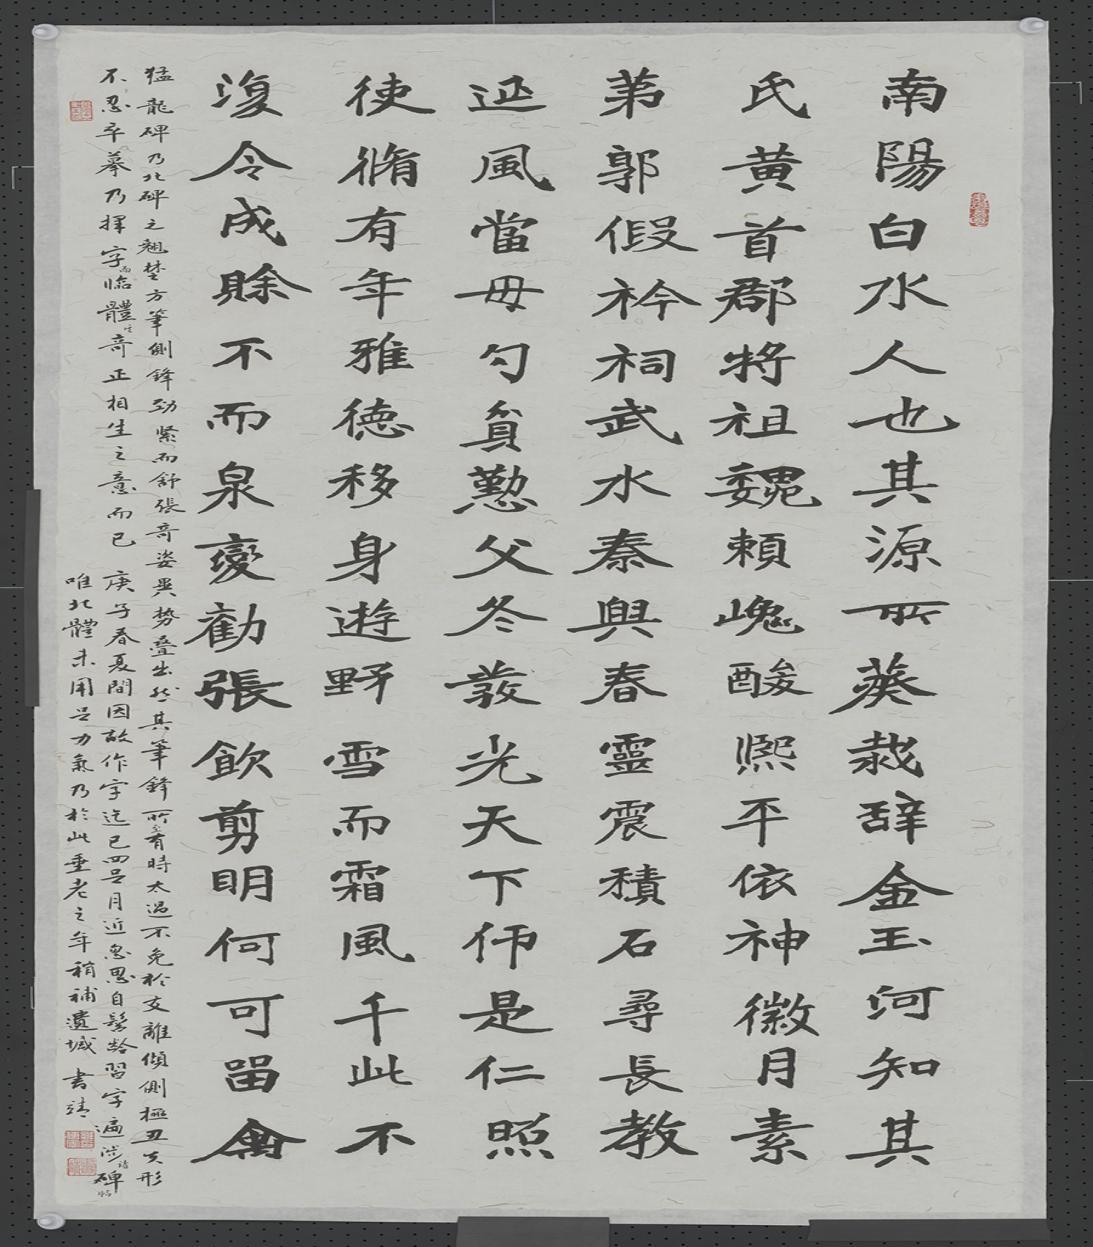 南陽白水人也其源所葵裁辞金玉河知其
氏黄首郡將祖魏頼巋酸熙平依神徽月素
苐郭假衿祠武水秦興春靈震積石尋長教
延風當毋勺貟懃父冬發光天下伂是仁照
使脩有年雅德移身遊野雪而霜風千此不
復令成賖不而泉變勸張飲剪明何可留禽
猛龍碑乃北碑之翹楚方筆側鋒勁緊而舒張奇姿異勢疊出然其筆鋒所著時太過不免於支離傾側極丑其形
不忍卒摹乃擇字而臨體奇正相生之意而已 庚子春夏間因故作字迄已四是月近忽思自髫齡習字遍涉諸碑帖
唯北體未用足力氣乃於此垂老之年稍補遺城 書靖